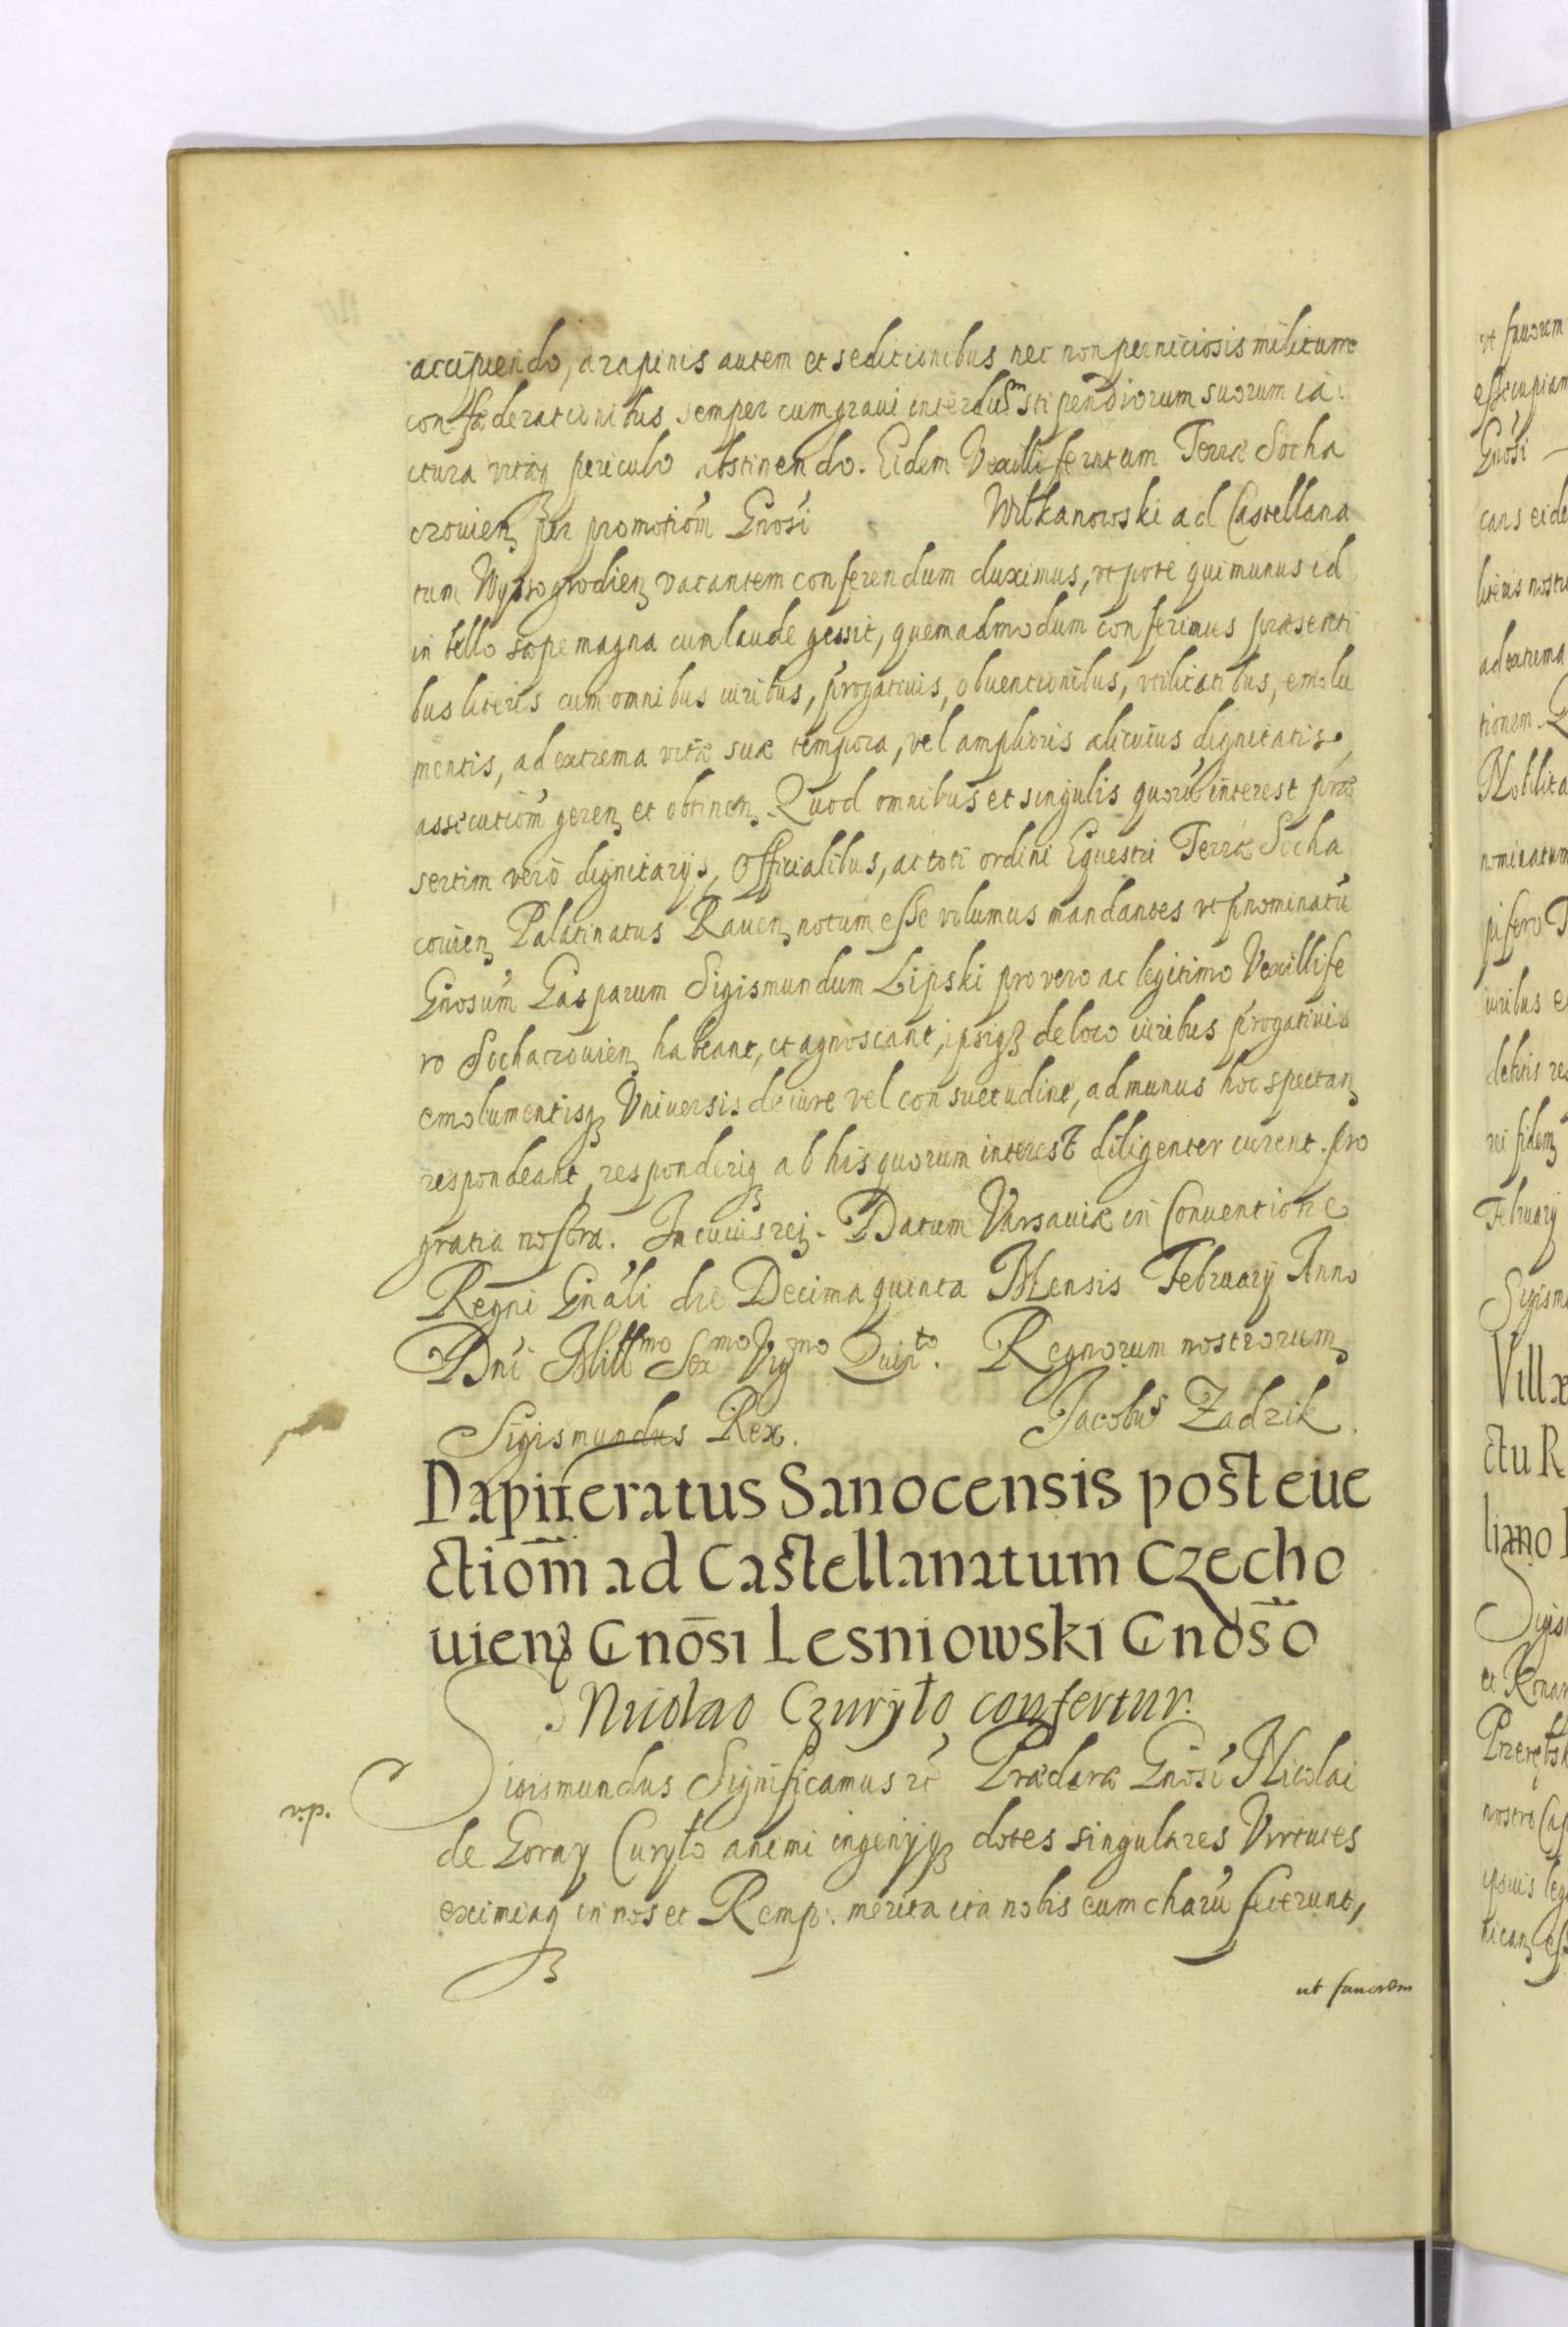 accipiendo, a rapinis autem et seditionibus nec non perniciosis militum
confæderationibus semper cum graui interdum stipendiorum suorum ia
ctura vitæq periculo abstinendo. Eidem Vexilliferatum Terræ Socha
czouien per promotiom Gnosi Wilkanowski ad Castellana
tum Wyssogrodien vacantem conferendum duximus, vtpote qui munus id
in bello sæpe magna cum laude gessit, quemadmodum conferimus præsenti
bus literis cum omnibus iuribus, progatiuis, obuentionibus, vtilitatibus, emolu
mentis, ad extrema vitæ suæ tempora, vel amplioris alicuius dignitatis
assecutiom geren et obtinen. Quod omnibus et singulis quoru interest præ
sertim vero dignitarijs, Officialibus, ac toti ordini Equestri Terræ Socha
couien Palatinatus Rauen notum esse volumus mandantes vt pnominatu
Gnosum Gasparum Sigismundum Lipski pro vero ac legitimo Vexillife
ro Sochaczouien habeant, et agnoscant, ipsiq de loco iuribus progatiuis
emolumentisq Vniuersis de iure vel consuetudine, ad munus hoc spectan
respondeant, responderiq ab his quorum interest diligenter curent. pro
gratia nostra. In cuius rei. Datum Varsauiæ in Conuentione
Regni Gnali die Decima quinta Mensis February Anno
Dni Mill<sup>mo</sup> Sex<sup>mo</sup> Vig<sup>mo</sup> Quin<sup>to</sup>. Regnorum nostrorum
Sigismundus Rex. Jacobus Zadzik.
Dapiferatus Sanocensis post eue
ctiom ad Castellanatum Czecho
uien Gnosi Lesniowski Gnoso
Nicolao Czuryło confertur.
Sigismundus Significamus rc Præclaræ Gnosi Nicolai
v.p.
de Goray Curyło animi ingenijq dotes singulares Virtutes
eximiæq in nos et Remp. merita ita nobis eum charu fecerunt,
ut fauorem